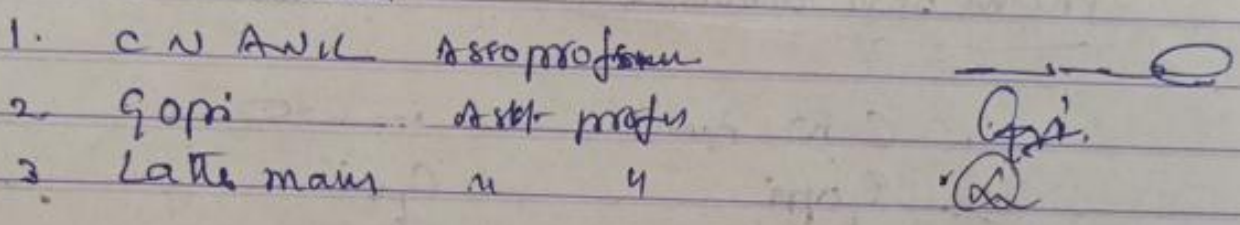 1. C N ANIL Asso professor
2. Gopi Asst professor Gopi.
3 Latte " "